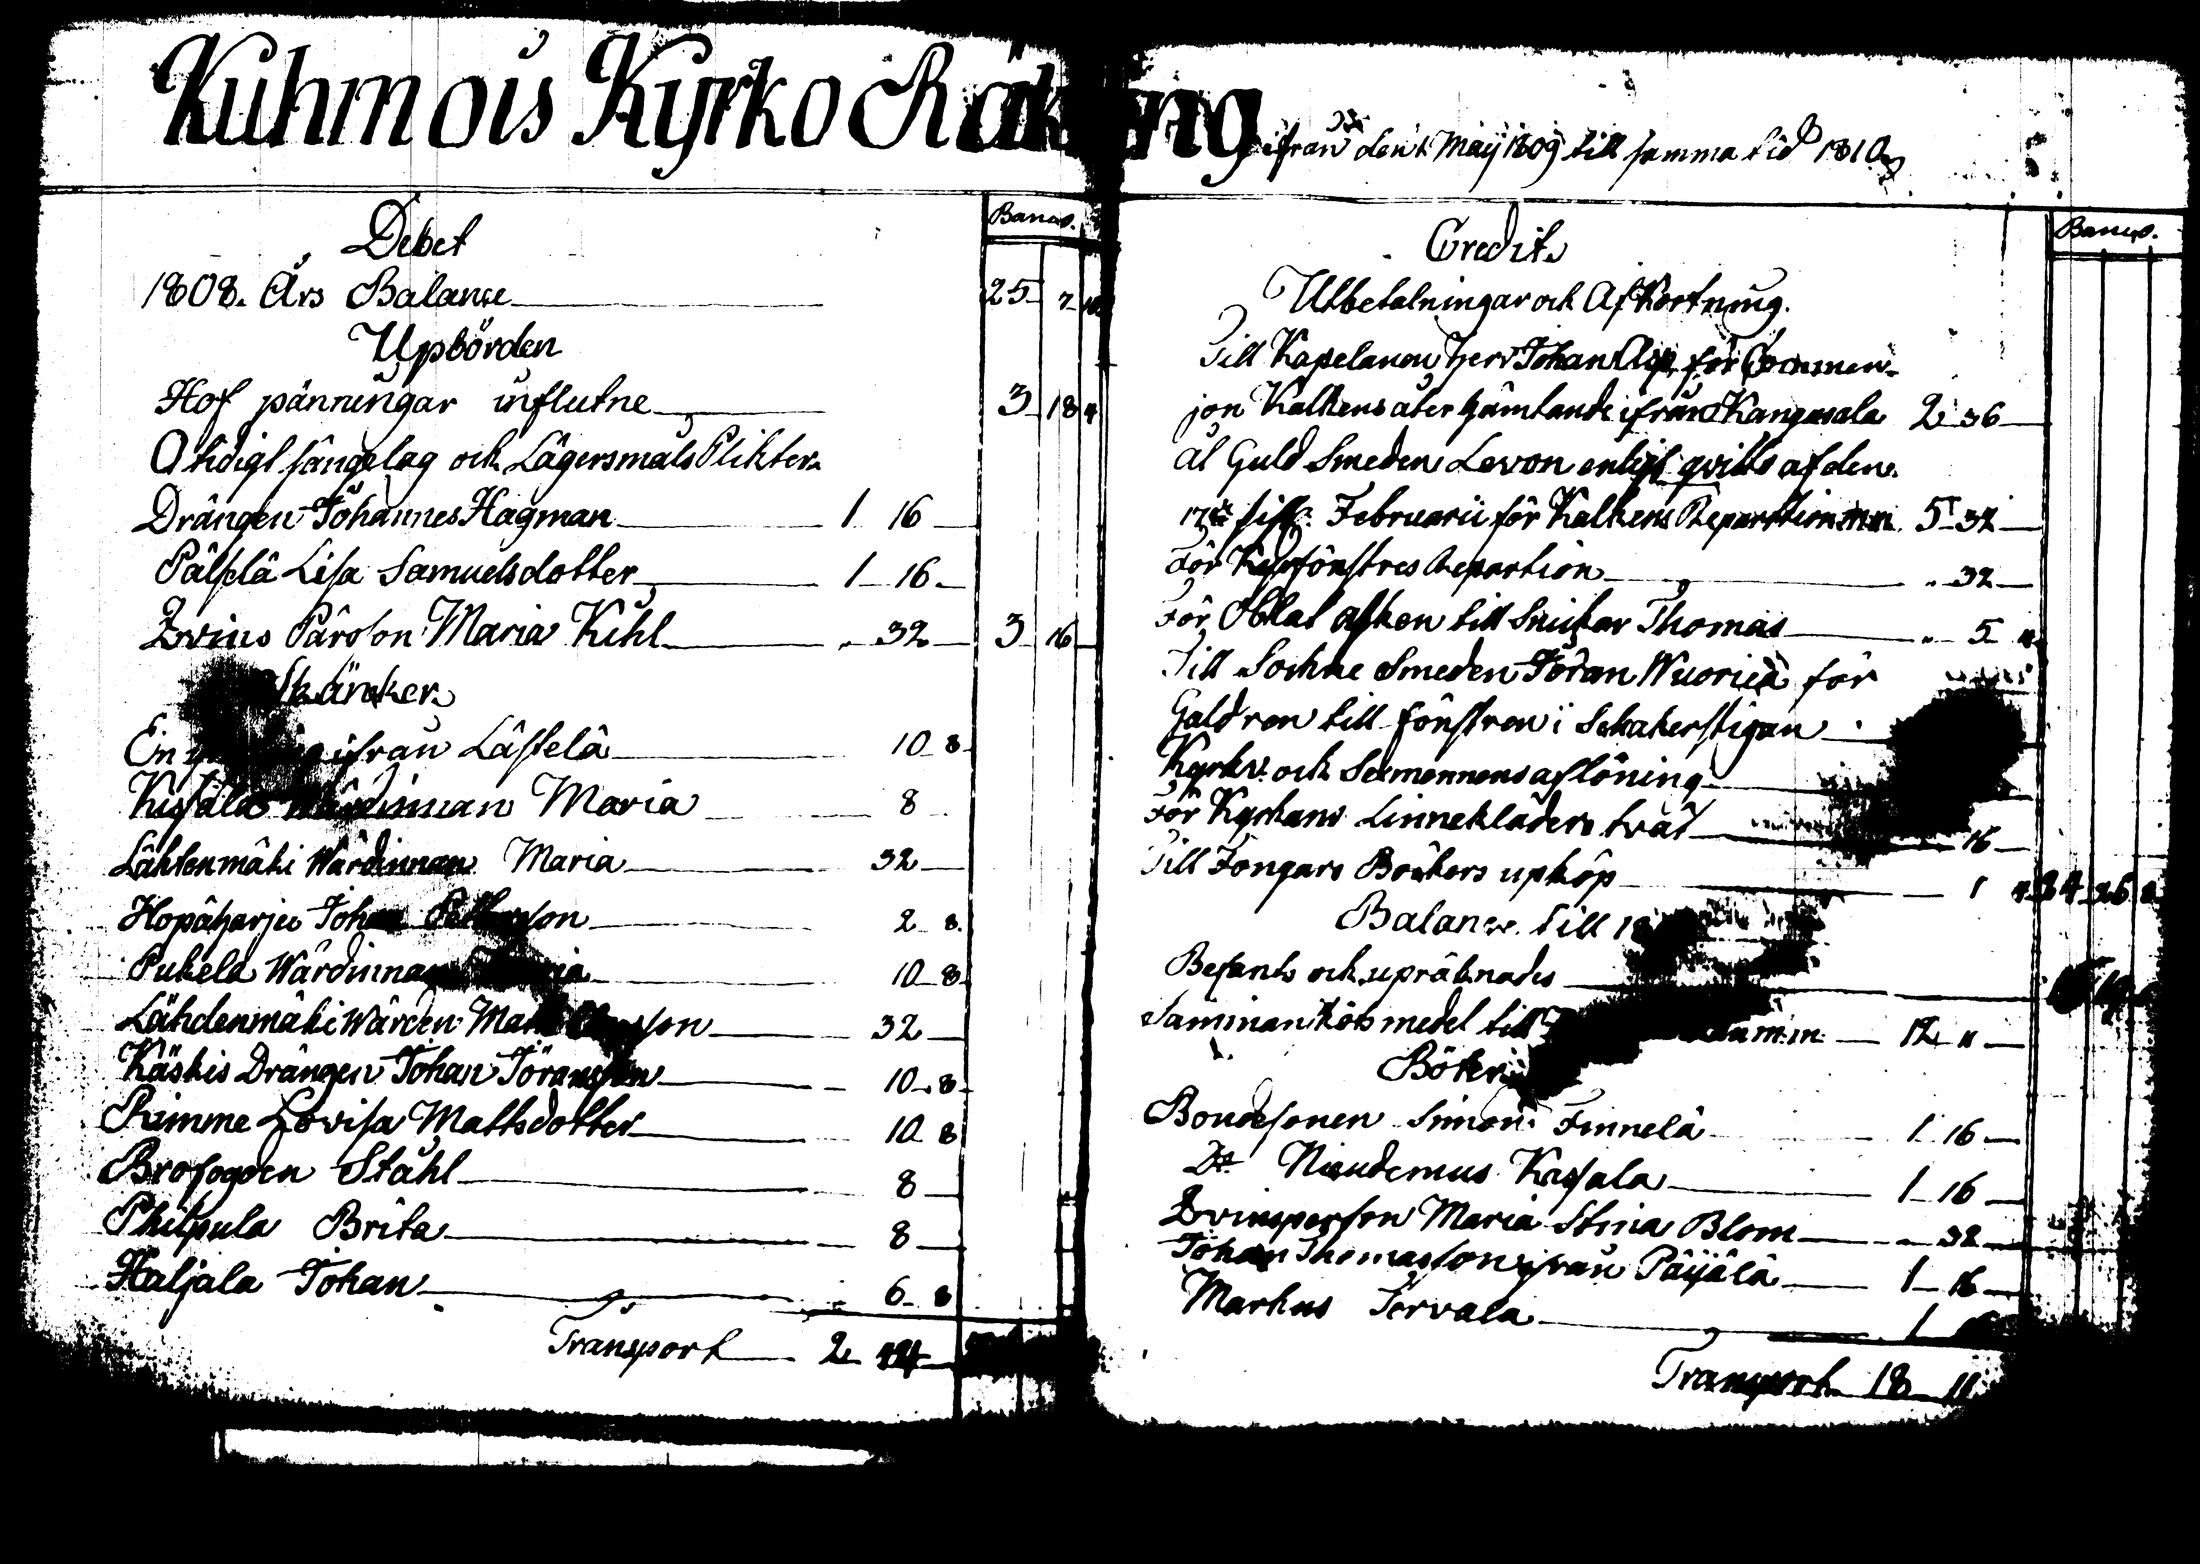 Kuhmois Kyrko Räkning ifrån den 1 Maij 1809 till samma tid 1810
Debet
Banco.
1808. Års Balance 25 7
Upbörden
Hof pänningar influtne 3 18 4
Otidigt sängelag och Lägersmåls Plikter
Drängen Johannes Hagman 1 16
Pälsilä Lisa Samuelsdotter 1 16
Qvins Pårson Maria Kihl 32 3 16
Skäncker
En ifrån Lästelä 10 8
Kissala Wärdinnan Maria 8
Lähtenmäki Wärdinnan Maria 32
Hopäharju Johan Pettersson 2 8
Puhela Wärdinnan 10 8
Lähdenmäki Wärden son 32
Käskis Drängen Johan Jöransson 10 8
Rimme Lovisa Mattsdotter 10 8
Brofogden Ståhl 8
Philpula Brita 8
Haljala Johan 6 8
Transport 2 44
Credit
Banco.
Utbetalningar och Afkortning.
Till Kapelanen Herr Johan Asp för Commun-
jon Kalkens åter hämtande ifrån Kangasala 2 36
åt Guld Smeden Levon enligt qvitto af den
17de sistl. Februarii för Kalkens Reparation 5 32
För Kyrkfönstres Repartion 32
För Oblat asken till Snickar Thomas 5 4
Till Sockne Smeden Jöran Wuorio för
Galdren till fönstren i Sakerstigan
Kyrkv. och Sexmennens aflöning
För Kyrkans Linnekläders tvät 16
Till Fongars Böckers upköp 1 4 24 26 8
Balance till
Befants och upräknades
Samman sköts medel till 12 11
Böter
Bondesonen Simon Finnelä 1 16
Do Nicudemus Kissala 1 16
Qvinsperson Maria Stina Blom 32
Johan Thomasson ifrån Päijälä 1 16
Markus Tervala 1
Transport 18 11